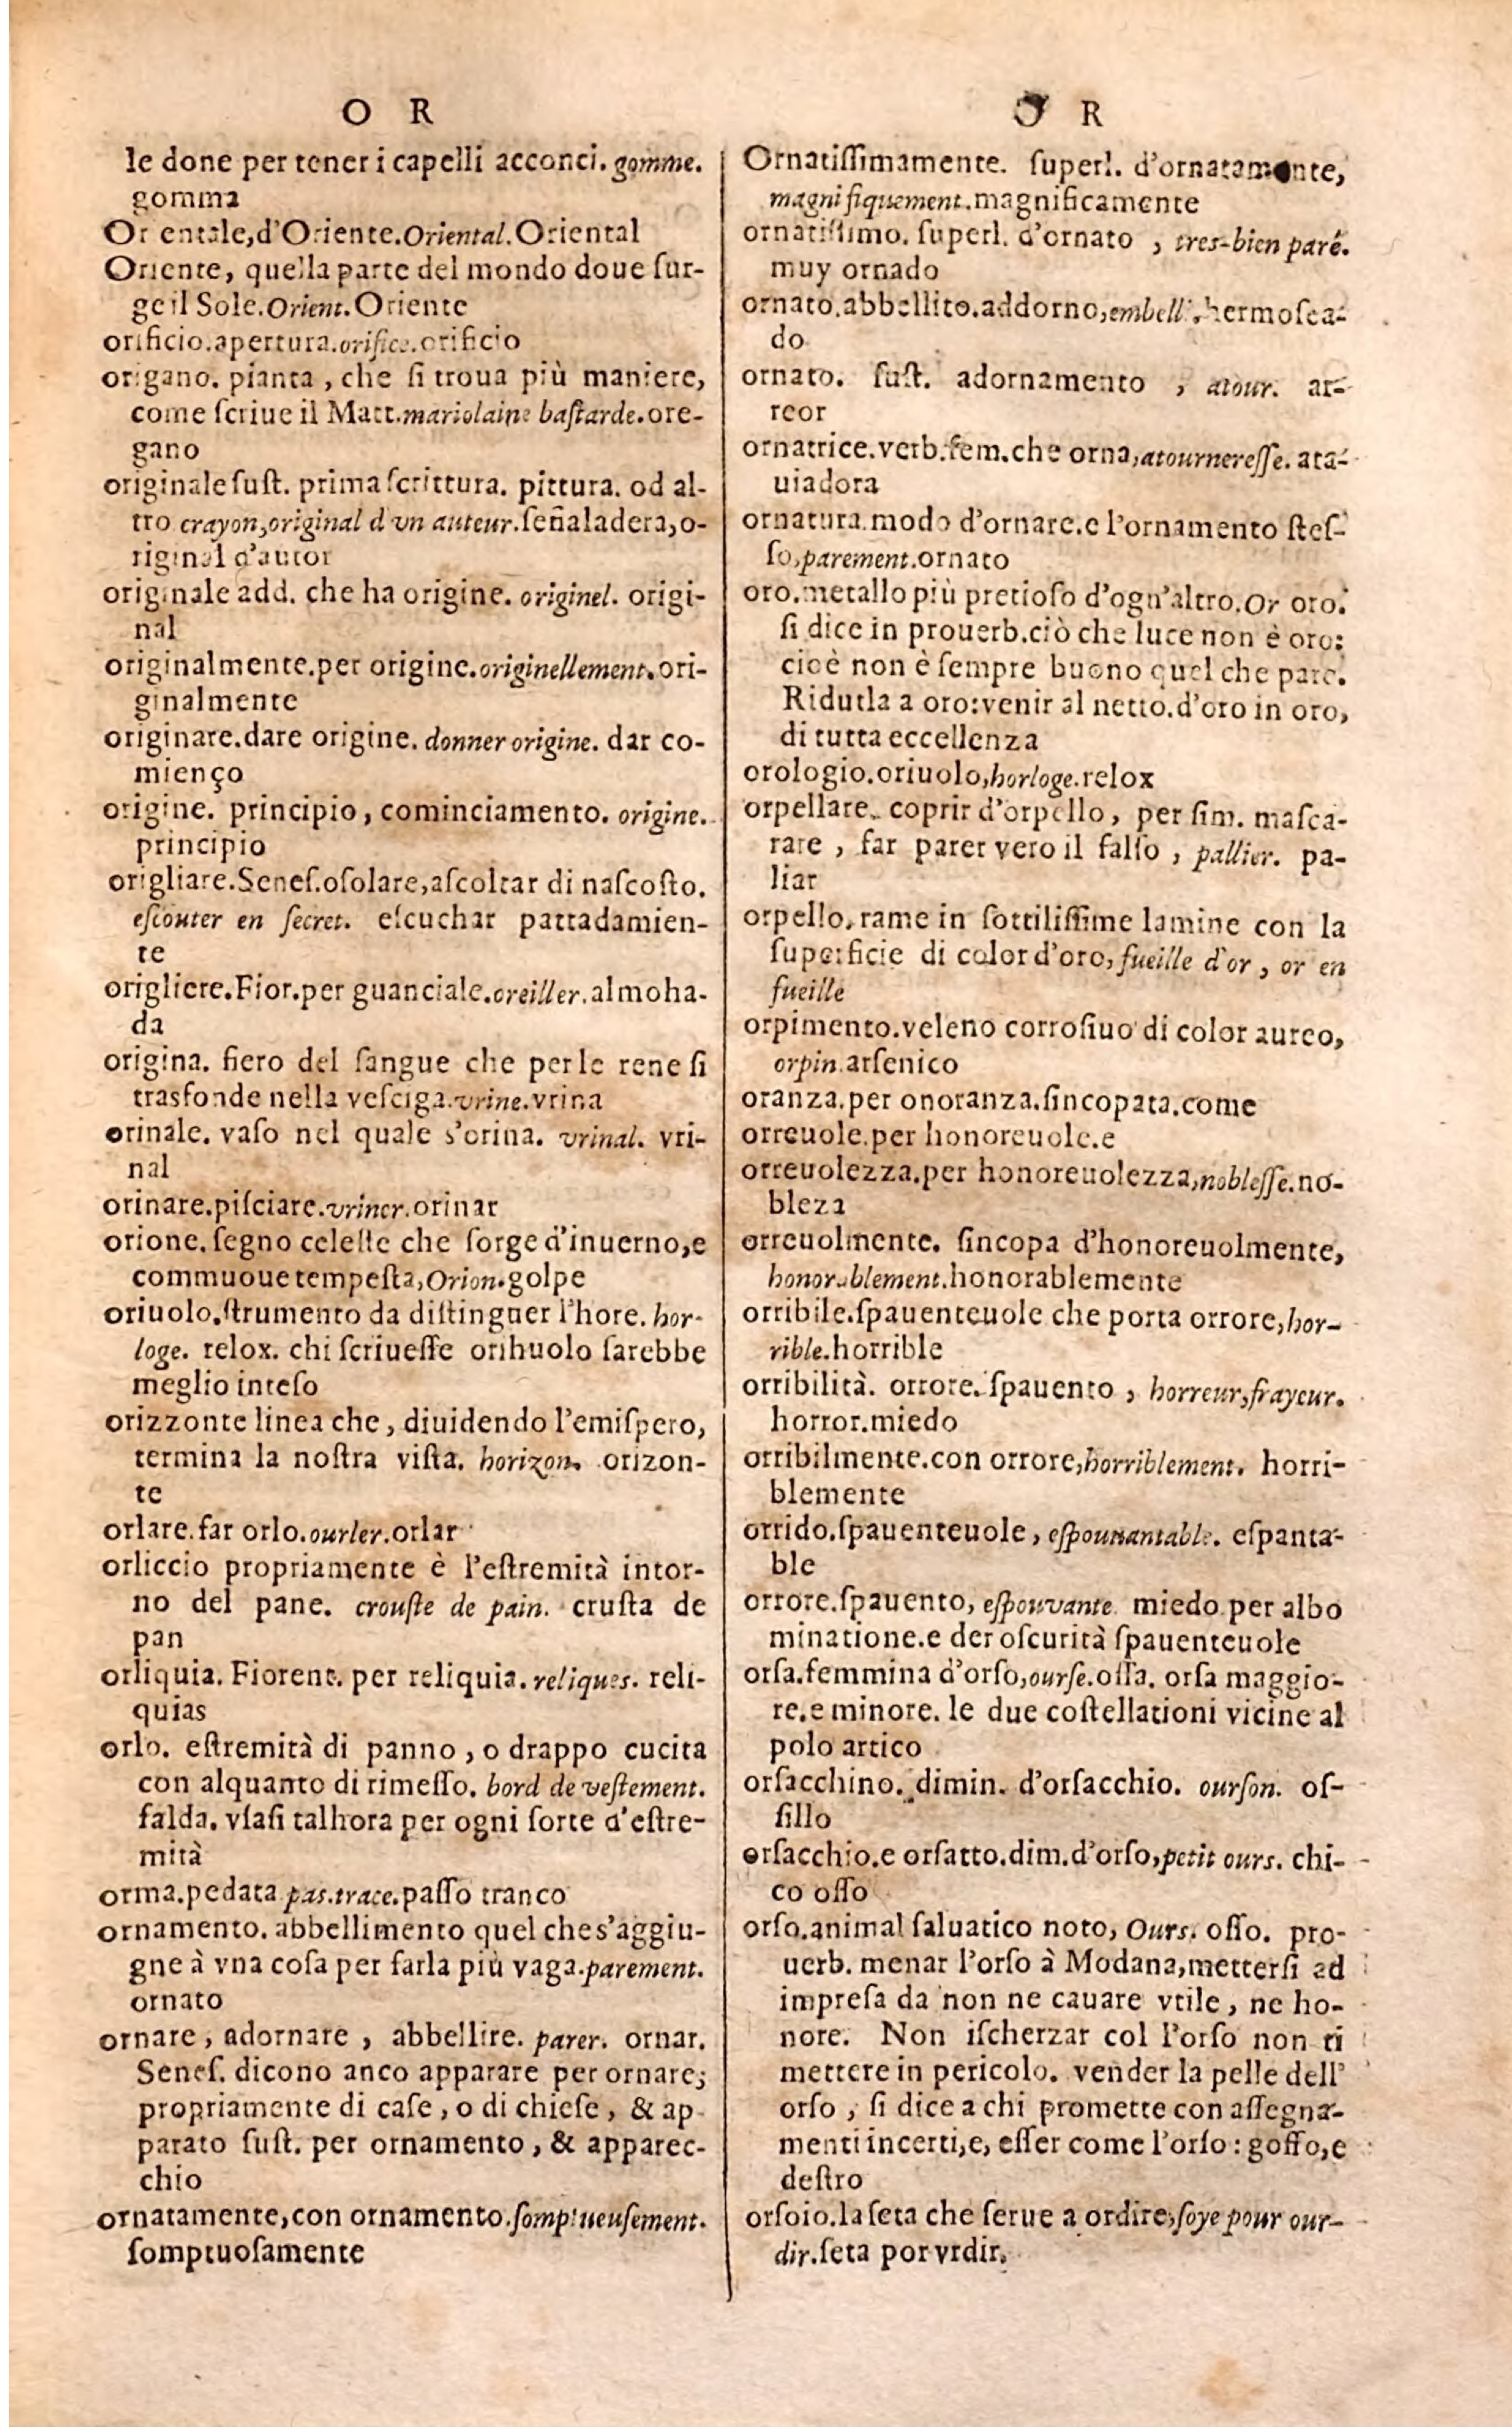 O R
le done per tener i capelli acconci. gomme.
gomma
Orientale, d'Oriente. Oriental. Oriental
Oriente, quella parte del mondo doue sur-
ge il Sole. Orient. Oriente
orificio. apertura. orifice. orificio
origano. pianta, che si troua più maniere,
come scriue il Matt. mariolaine bastarde. ore-
gano
originale sust. prima scrittura. pittura. od al-
tro crayon, original d'vn auteur. señaladera, o-
riginal d'autor
originale add. che ha origine. originel. origi-
nal
originalmente. per origine. originellement. ori-
ginalmente
originare. dare origine. donner origine. dar co-
mienço
origine. principio, cominciamento. origine.
principio
origliare. Senes. osolare, ascoltar di nascosto.
escouter en secret. escuchar pattadamien-
te
origliere. Fior. per guanciale. oreiller. almoha-
da
origina. siero del sangue che per le rene si
trasfonde nella vesciga. vrine. vrina
orinale. vaso nel quale s'orina. vrinal. vri-
nal
orinare. pisciare. vriner. orinar
orione. segno celeste che sorge d'inuerno, e
commuoue tempesta, Orion. golpe
oriuolo. strumento da distinguer l'hore. hor-
loge. relox. chi scriuesse orihuolo sarebbe
meglio inteso
orizzonte linea che, diuidendo l'emispero,
termina la nostra vista. horizon. orizon-
te
orlare. far orlo. ourler. orlar
orliccio propriamente è l'estremità intor-
no del pane. crouste de pain. crusta de
pan
orliquia. Fiorent. per reliquia. reliques. reli-
quias
orlo. estremità di panno, o drappo cucita
con alquanto di rimesso. bord de vestement.
falda. vsasi talhora per ogni sorte d'estre-
mità
orma. pedata pas. trace. passo tranco
ornamento. abbellimento quel che s'aggiu-
gne à vna cosa per farla più vaga. parement.
ornato
ornare, adornare, abbellire. parer. ornar.
Senes. dicono anco apparare per ornare;
propriamente di case, o di chiese, & ap-
parato sust. per ornamento, & apparec-
chio
ornatamente, con ornamento. somptueusement.
somptuosamente
O R
Ornatissimamente. superl. d'ornatamente,
magnifiquement. magnificamente
ornatissimo. superl. d'ornato, tres-bien paré.
muy ornado
ornato. abbellito. addorno, embelli. hermosea-
do
ornato. sust. adornamento, atour. ar-
reor
ornatrice. verb. fem. che orna, atourneresse. ata-
uiadora
ornatura. modo d'ornare. e l'ornamento stes-
so, parement. ornato
oro. metallo più pretioso d'ogn'altro. Or oro.
si dice in prouerb. ciò che luce non è oro:
cioè non è sempre buono quel che pare.
Ridurla a oro: venir al netto. d'oro in oro,
di tutta eccellenza
orologio. oriuolo, horloge. relox
orpellare. coprir d'orpello, per sim. masca-
rare, far parer vero il falso, pallier. pa-
liar
orpello. rame in sottilissime lamine con la
superficie di color d'oro, fueille d'or, or en
fueille
orpimento. veleno corrosiuo di color aureo,
orpin. arsenico
oranza. per onoranza. sincopata. come
orreuole. per honoreuole. e
orreuolezza. per honoreuolezza, noblesse. no-
bleza
orreuolmente. sincopa d'honoreuolmente,
honorablement. honorablemente
orribile. spauenteuole che porta orrore, hor-
rible. horrible
orribilità. orrore. spauento, horreur, frayeur.
horror. miedo
orribilmente. con orrore, horriblement. horri-
blemente
orrido. spauenteuole, espouuantable. espanta-
ble
orrore. spauento, espouvante. miedo. per albo
minatione. e der oscurità spauenteuole
orsa. femmina d'orso, ourse. ossa. orsa maggio-
re. e minore. le due costellationi vicine al
polo artico
orsacchino. dimin. d'orsacchio. ourson. os-
sillo
orsacchio. e orsatto. dim. d'orso, petit ours. chi-
co osso
orso. animal saluatico noto, Ours. osso. pro-
uerb. menar l'orso à Modana, mettersi ad
impresa da non ne cauare vtile, ne ho-
nore. Non ischerzar col l'orso non ti
mettere in pericolo. vender la pelle dell'
orso, si dice a chi promette con assegna-
menti incerti, e, esser come l'orso: goffo, e
destro
orsoio. la seta che serue a ordire, soye pour our-
dir. seta por vrdir.